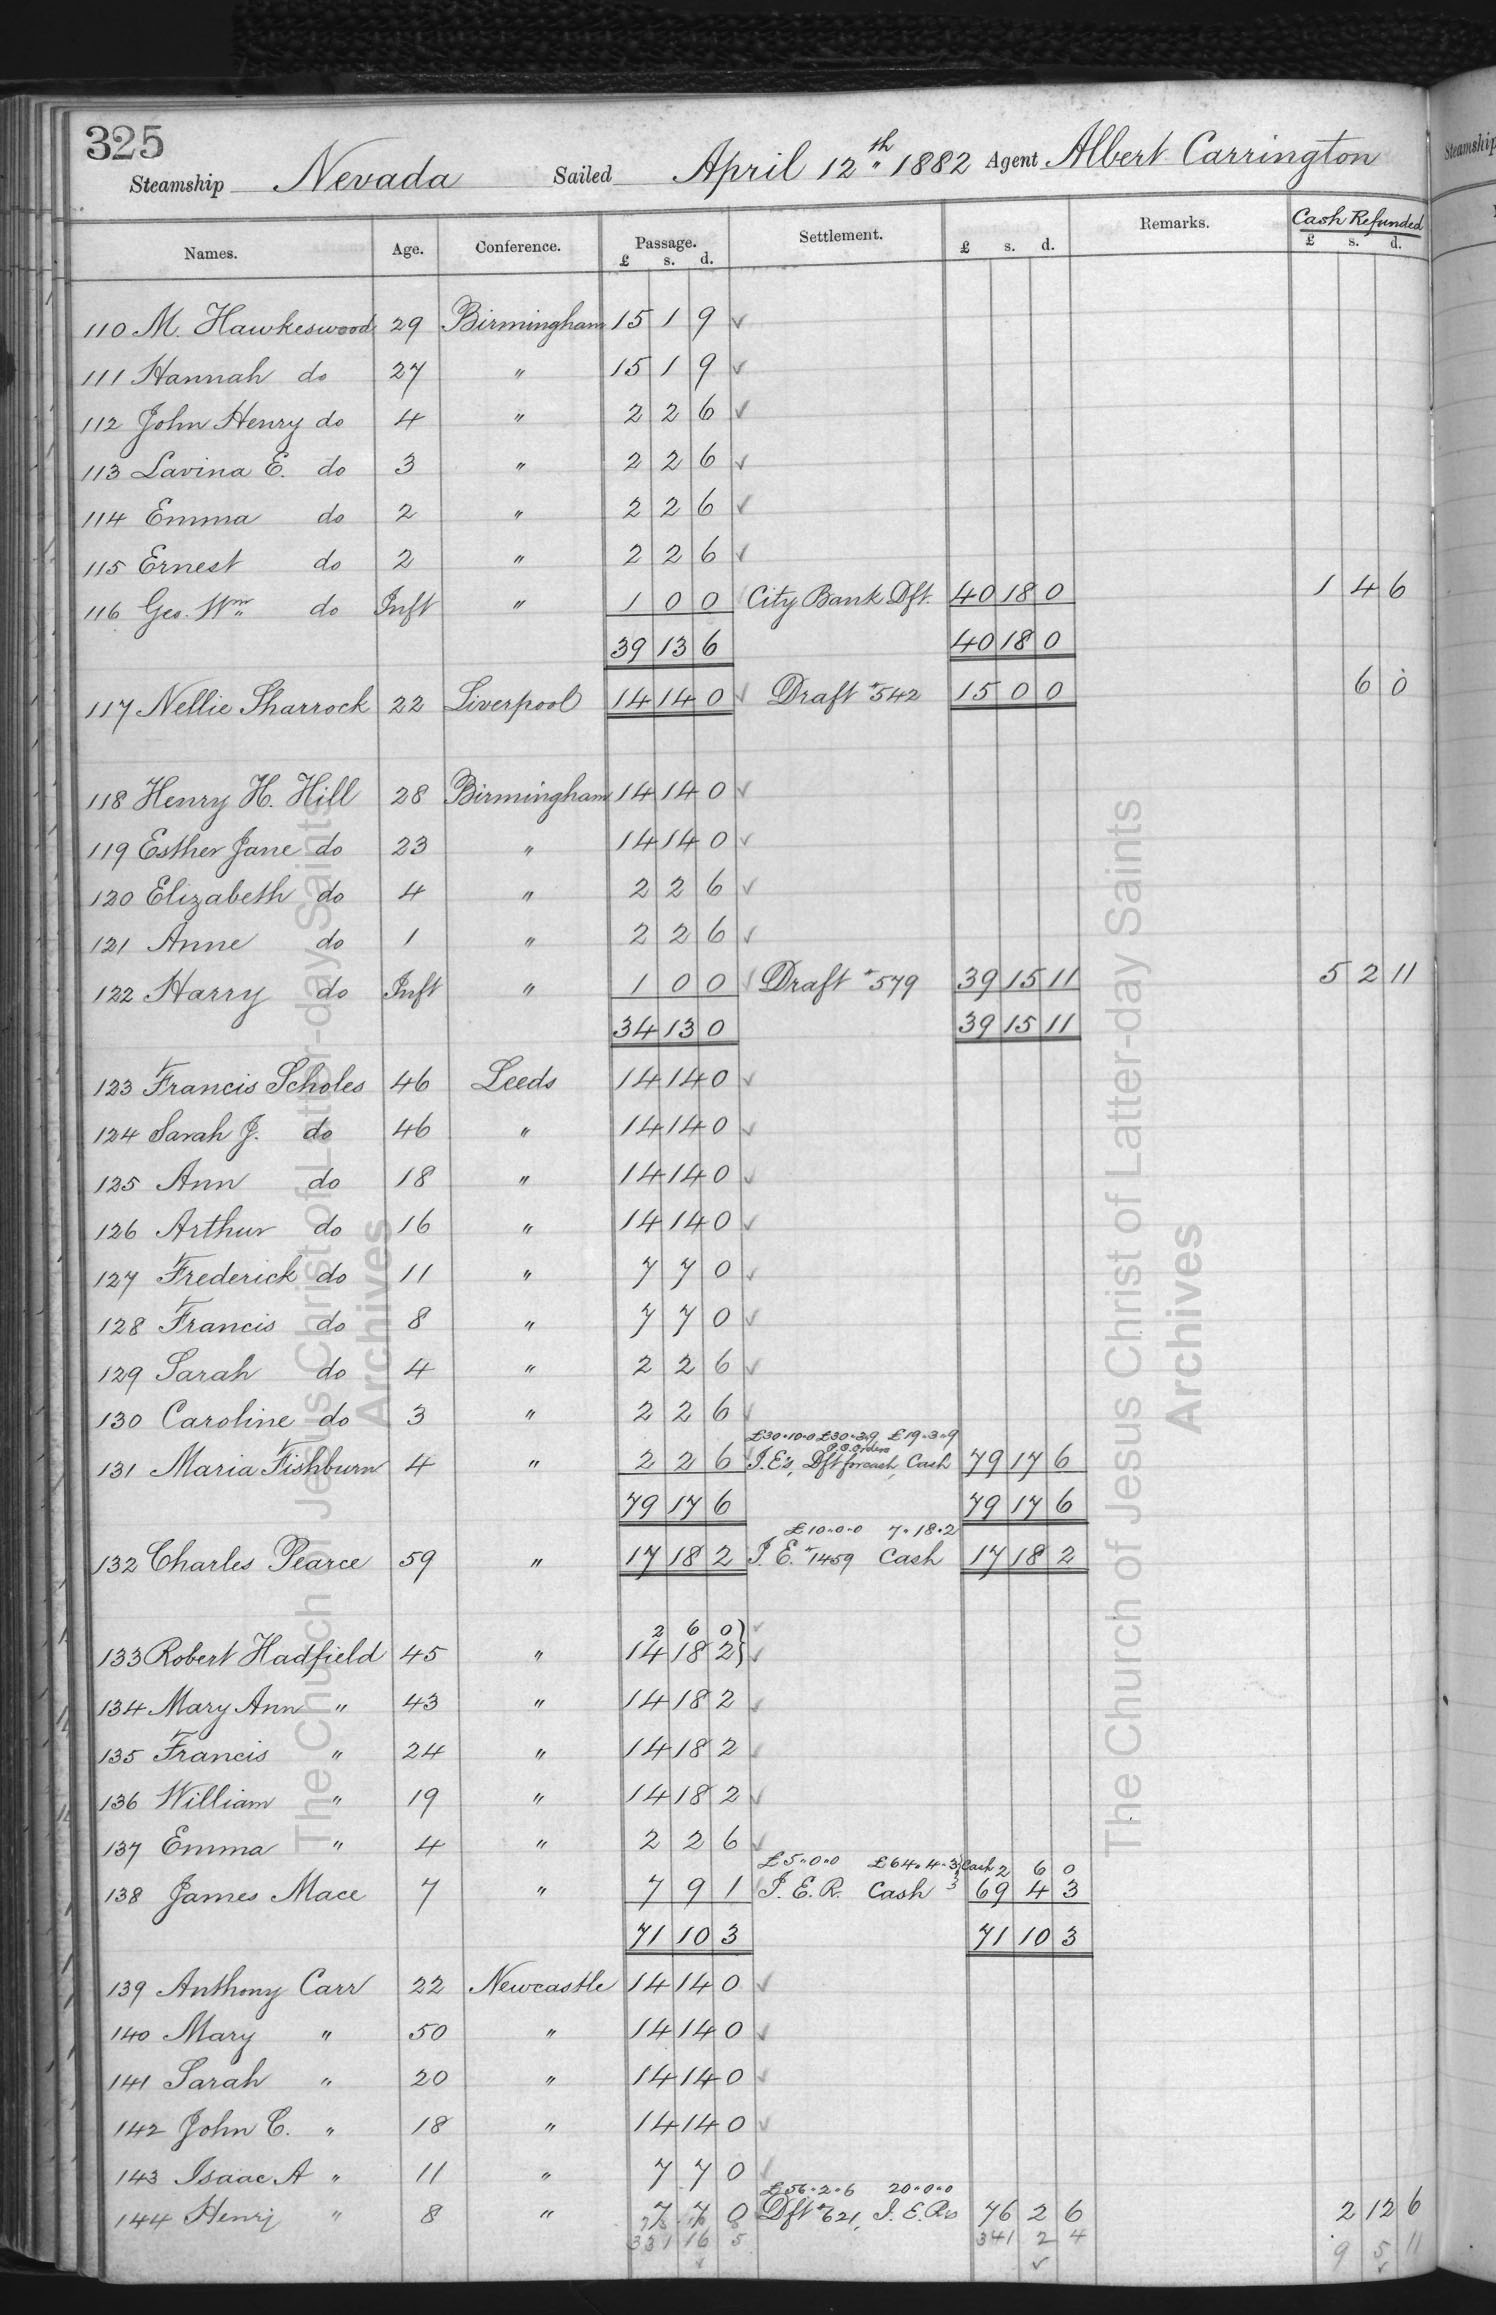 325
Steamship Nevada Sailed April 12th 1882 Agent Albert Carrington
Names. Age. Conference. Passage. £ s. d. Settlement. £ s. d. Remarks. Cash Refunded £ s. d.
110 M. Hawkeswood 29 Birmingham 15 1 9 ✓
111 Hannah do 27 " 15 1 9 ✓
112 John Henry do 4 " 2 2 6 ✓
113 Lavina E. do 3 " 2 2 6 ✓
114 Emma do 2 " 2 2 6 ✓
115 Ernest do 2 " 2 2 6 ✓
116 Geo. Wm do Inft " 1 0 0 City Bank Dft. 40 18 0 1 4 6
39 13 6 40 18 0
117 Nellie Sharrock 22 Liverpool 14 14 0 ✓ Draft #542 15 0 0 6 0
118 Henry H. Hill 28 Birmingham 14 14 0 ✓
119 Esther Jane do 23 " 14 14 0 ✓
120 Elizabeth do 4 " 2 2 6 ✓
121 Anne do 1 " 2 2 6 ✓
122 Harry do Inft " 1 0 0 ✓ Draft #579 39 15 11 5 2 11
34 13 0 39 15 11
123 Francis Scholes 46 Leeds 14 14 0 ✓
124 Sarah J. do 46 " 14 14 0 ✓
125 Ann do 18 " 14 14 0 ✓
126 Arthur do 16 " 14 14 0 ✓
127 Frederick do 11 " 7 7 0 ✓
128 Francis do 8 " 7 7 0 ✓
129 Sarah do 4 " 2 2 6 ✓
130 Caroline do 3 " 2 2 6 ✓
£30.10.0 £30.3.9 £19.3.9
P.O. Orders
131 Maria Fishburn 4 " 2 2 6 I.E's, Dft for cash, Cash 79 17 6
79 17 6 79 17 6
£10.0.0 7.18.2
132 Charles Pearce 59 " 17 18 2 I.E. #1459 Cash 17 18 2
2 6 0 } ✓
133 Robert Hadfield 45 " 14 18 2 } ✓
134 Mary Ann " 43 " 14 18 2 ✓
135 Francis " 24 " 14 18 2 ✓
136 William " 19 " 14 18 2 ✓
137 Emma " 4 " 2 2 6 ✓
£5.0.0 £64.4.3 Cash 2 6 0
138 James Mace 7 " 7 9 1 I.E.R. Cash 69 4 3
71 10 3 71 10 3
139 Anthony Carr 22 Newcastle 14 14 0 ✓
140 Mary " 50 " 14 14 0 ✓
141 Sarah " 20 " 14 14 0 ✓
142 John C. " 18 " 14 14 0 ✓
143 Isaac A " 11 " 7 7 0 ✓
£56.2.6 20.0.0
144 Henry " 8 " 7 7 0 Dft #621, I.E.Rs 76 2 6 2 12 6
331 16 5 341 2 4 9 5 11
✓ ✓ ✓
The Church of Jesus Christ of Latter-day Saints
Archives
The Church of Jesus Christ of Latter-day Saints
Archives
Steamship